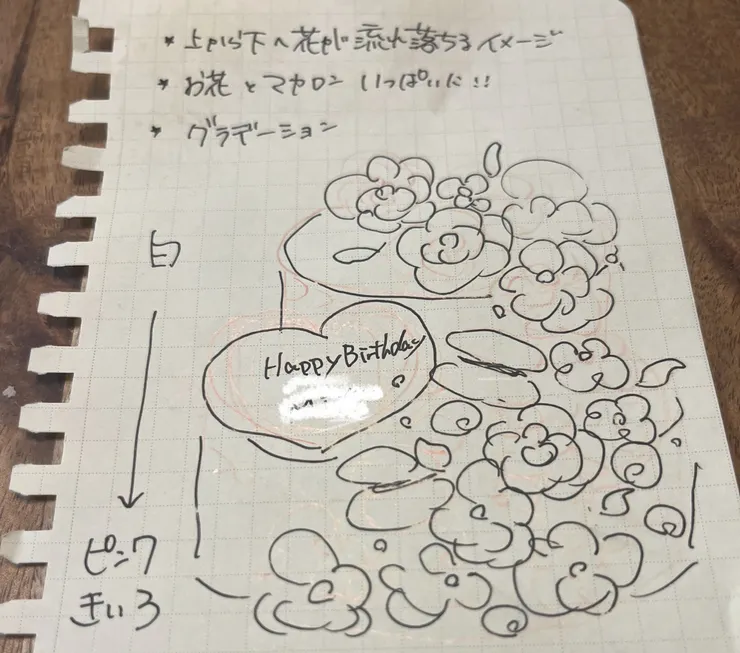 * 上から下へ花が流れ落ちるイメージ
* お花とマカロン いっぱいに!!
* グラデーション
白
Happy Birthday
ピンク
きいろ